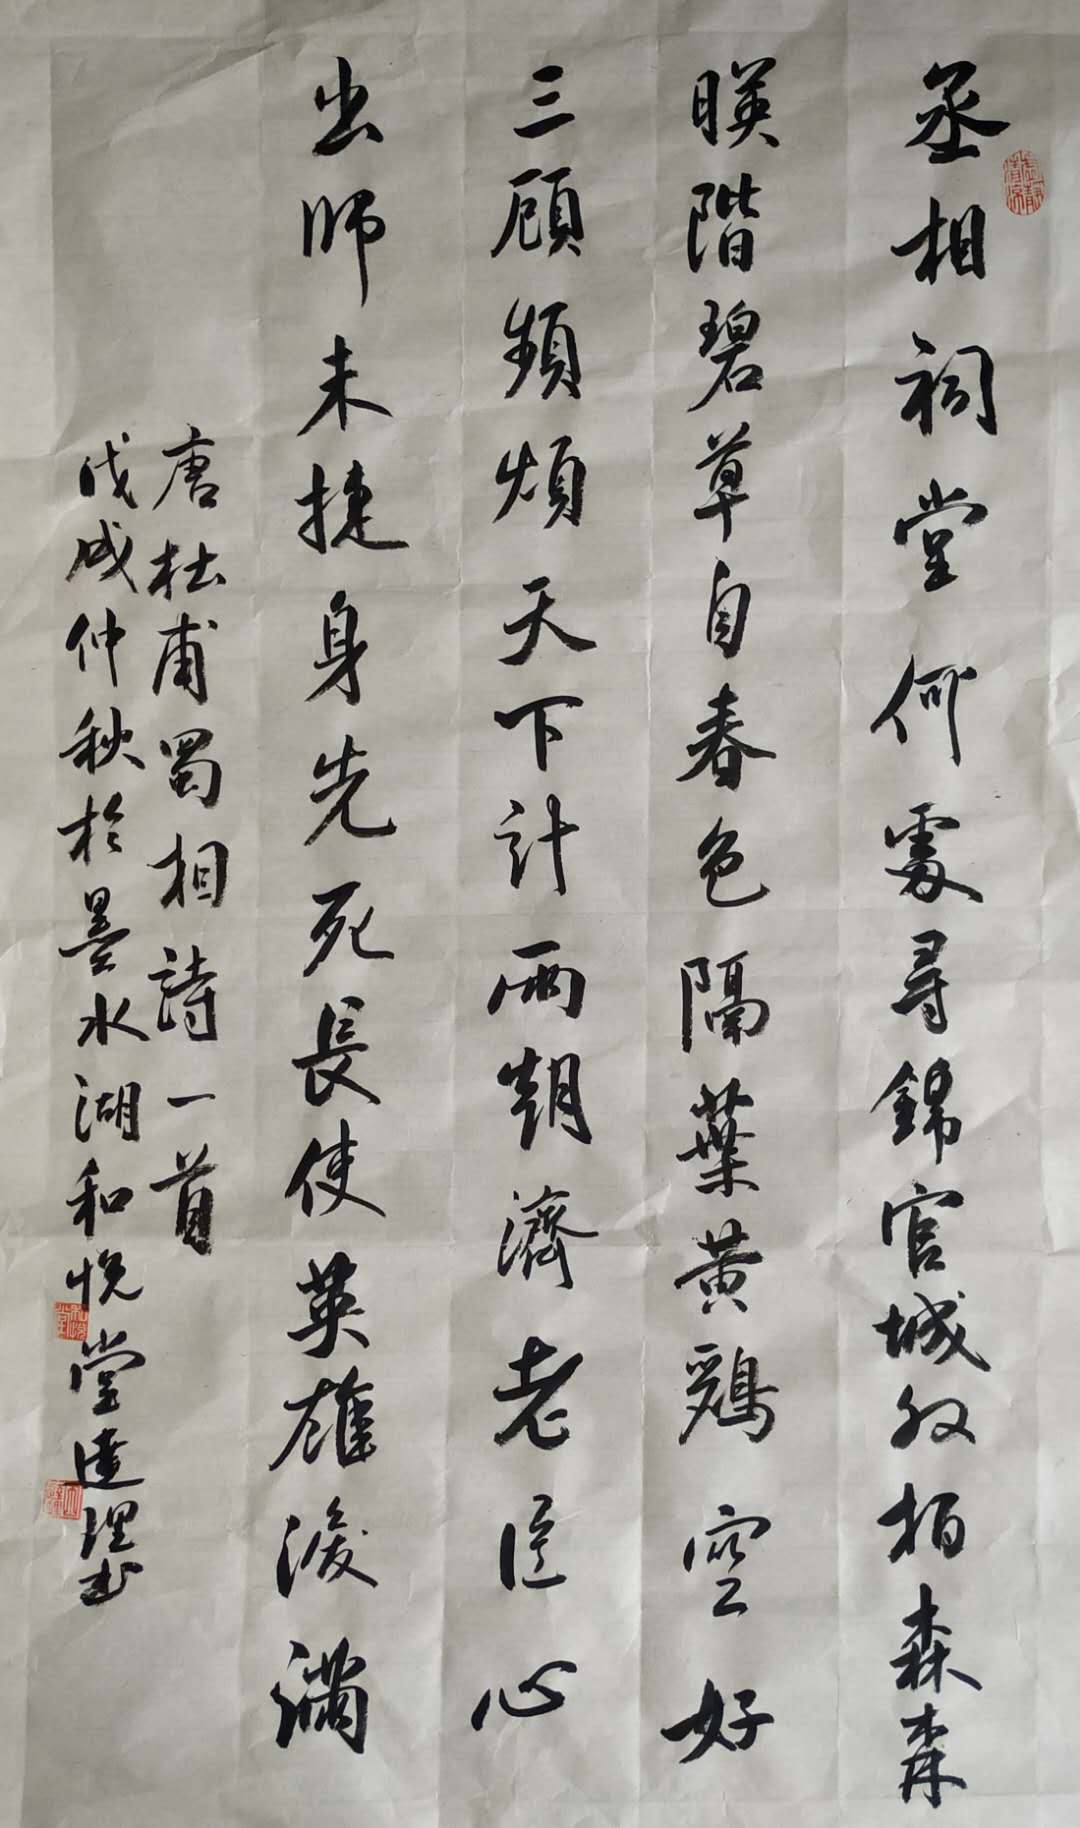 丞相祠堂何處尋錦官城外柏森森
暎階碧草自春色隔葉黃鸝空好
三顧頻煩天下計兩朝濟老臣心
出師未捷身先死長使英雄淚滿
唐杜甫蜀相詩一首
戊戌仲秋於墨水湖和悅堂達理書
和悅堂